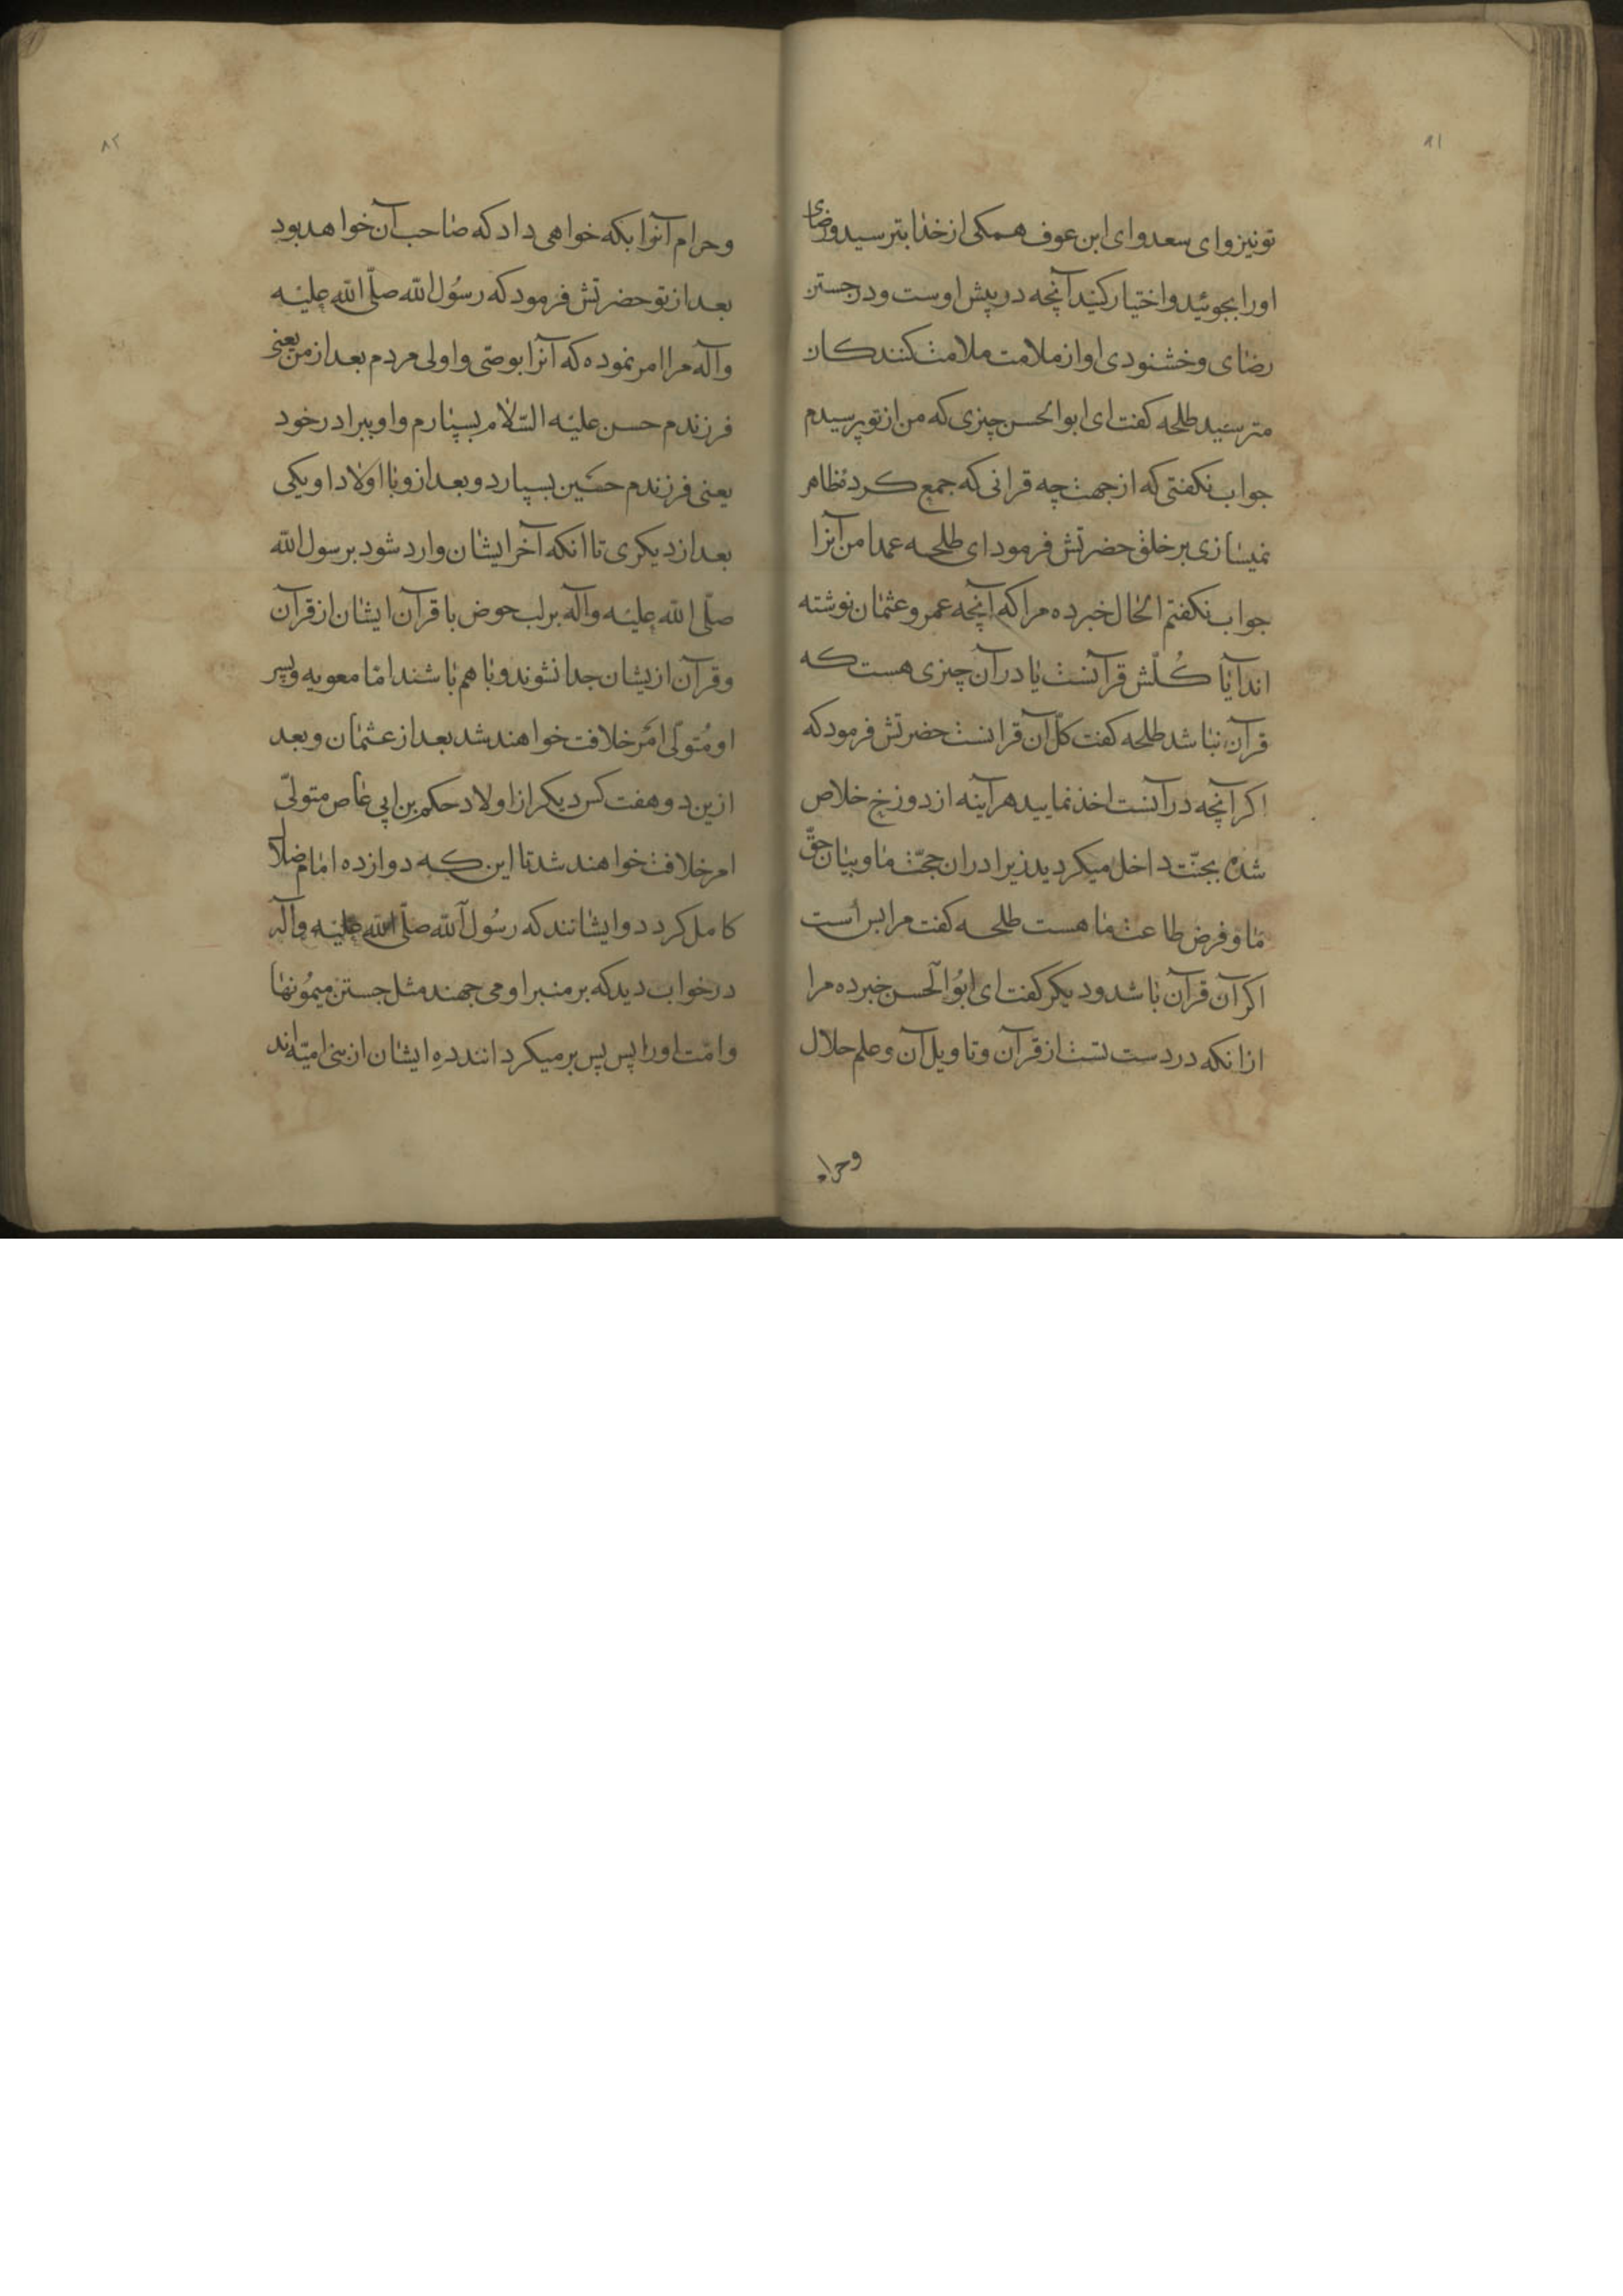 ۸۱
تو نیز و ای سعد و ای ابن عوف همکی از خدا بترسید و رضای
او را بجوئید و اختیار کنید آنچه در پیش اوست و در جستن
رضای و خشنودی او از ملامت ملامت کنندکان
مترسید طلحه کفت ای ابو الحسن چیزی که من از تو پرسیدم
جواب نکفتی که از جهت چه قرانی که جمع کرد ظاهر
نمیسازی بر خلق حضرتش فرمود ای طلحه عمدا من آنرا
جواب نکفتم الحال خبر ده مرا که آنچه عمر و عثمان نوشته
اند آیا کُلّش قرآنست یا در آن چیزی هست که
قرآن نباشد طلحه کفت کلّ آن قرانست حضرتش فرمود که
اکر آنچه در آنست اخذ نمایید هر آینه از دوزخ خلاص
شده بجنّت داخل میکردید زیرا در ان حجّت ما و بیان حقّ
ما و فرض طاعت ما هست طلحه کفت مرا بس است
اکر آن قرآن باشد و دیکر کفت ای ابُو الحسن خبر ده مرا
از انکه در دست تست از قرآن و تاویل آن و علم حلال
وحرام
۸۲
و حرام آنرا بکه خواهی داد که صاحب آن خواهد بود
بعد از تو حضرتش فرمود که رسُول الله صلّی الله علیه
وآله مرا امر نموده که آنرا بوصّی و اولی مردم بعد از من یعنی
فرزندم حسن علیه السّلام بسپارم و او ببرادر خود
یعنی فرزندم حسَین بسپارد و بعد از و با اولاد او یکی
بعد از دیکری تا انکه آخر ایشان وارد شود بر رسول الله
صلّی الله علیه وآله بر لب حوض با قرآن ایشان از قرآن
و قرآن از یشان جدا نشوند و با هم باشند امّا معویه و پسر
او مُتولّی امَر خلافت خواهند شد بعد از عثمان و بعد
ازین دو هفت کس دیکر از اولاد حکم بن ابی عاص متولّی
امر خلافت خواهند شد تا این که دوازده امام ضلال
کامل کردد و ایشانند که رسُول الله صلّی الله علیه وآله
در خواب دید که بر منبر او می جهند مثل جستن میمُونها
و امّت او را پس پس بر میکردانند ده ایشان از بنی امیّه اند